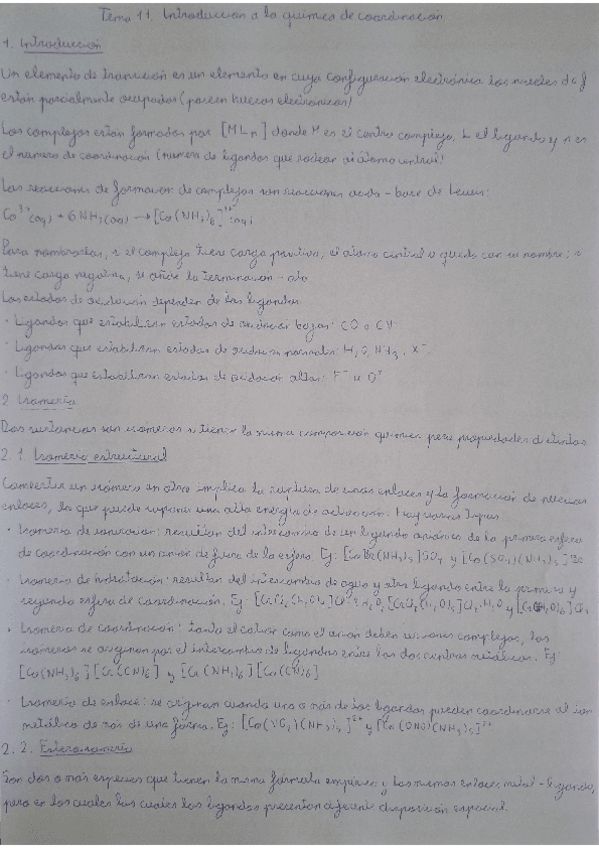 Tema 11. Introducción a la química de coordinación
1. Introducción
Un elemento de transición es un elemento en cuya configuración electrónica los niveles d o f
están parcialmente ocupados (poseen huecos electrónicos)
Los complejos están formados por [MLn] donde M es el centro complejo, L el ligando y n es
el número de coordinación (número de ligandos que rodean al átomo central)
Las reacciones de formación de complejos son reacciones ácido-base de Lewis:
Co³⁺(aq) + 6NH₃(aq) → [Co(NH₃)₆]³⁺(aq)
Para nombrarlos, si el complejo tiene carga positiva, el átomo central queda con su nombre; si
tiene carga negativa, se añade la terminación -ato
Los estados de oxidación dependen de los ligandos
· Ligandos que estabilizan estados de oxidación bajos: CO o CN⁻
· Ligandos que estabilizan estados de oxidación normales: H₂O, NH₃, X⁻
· Ligandos que estabilizan estados de oxidación altos: F⁻ u O²⁻
2 Isomería
Dos sustancias son isómeros si tienen la misma composición química pero propiedades distintas
2.1. Isomería estructural
Convertir un isómero en otro implica la ruptura de unos enlaces y la formación de nuevos
enlaces, lo que puede suponer una alta energía de activación. Hay varios tipos:
· Isomería de ionización: resultan del intercambio de un ligando aniónico de la primera esfera
de coordinación con un anión de fuera de la esfera. Ej: [CoBr(NH₃)₅]SO₄ y [Co(SO₄)(NH₃)₅]Br
· Isomería de hidratación: resultan del intercambio de agua y otro ligando entre la primera y
segunda esfera de coordinación. Ej:
· Isomería de coordinación: tanto el catión como el anión deben ser iones complejos, los
isómeros se originan por el intercambio de ligandos entre los dos centros metálicos. Ej:
[Co(NH₃)₆][Cr(CN)₆] y [Cr(NH₃)₆][Co(CN)₆]
· Isomería de enlace: se originan cuando uno o más de los ligandos pueden coordinarse al ion
metálico de más de una forma. Ej: [Co(NO₂)(NH₃)₅]²⁺ y [Co(ONO)(NH₃)₅]²⁺
2.2. Estereoisomería
Son dos o más especies que tienen la misma fórmula empírica y los mismos enlaces metal-ligando,
pero en los cuales los cuales los ligandos presentan diferente disposición espacial.